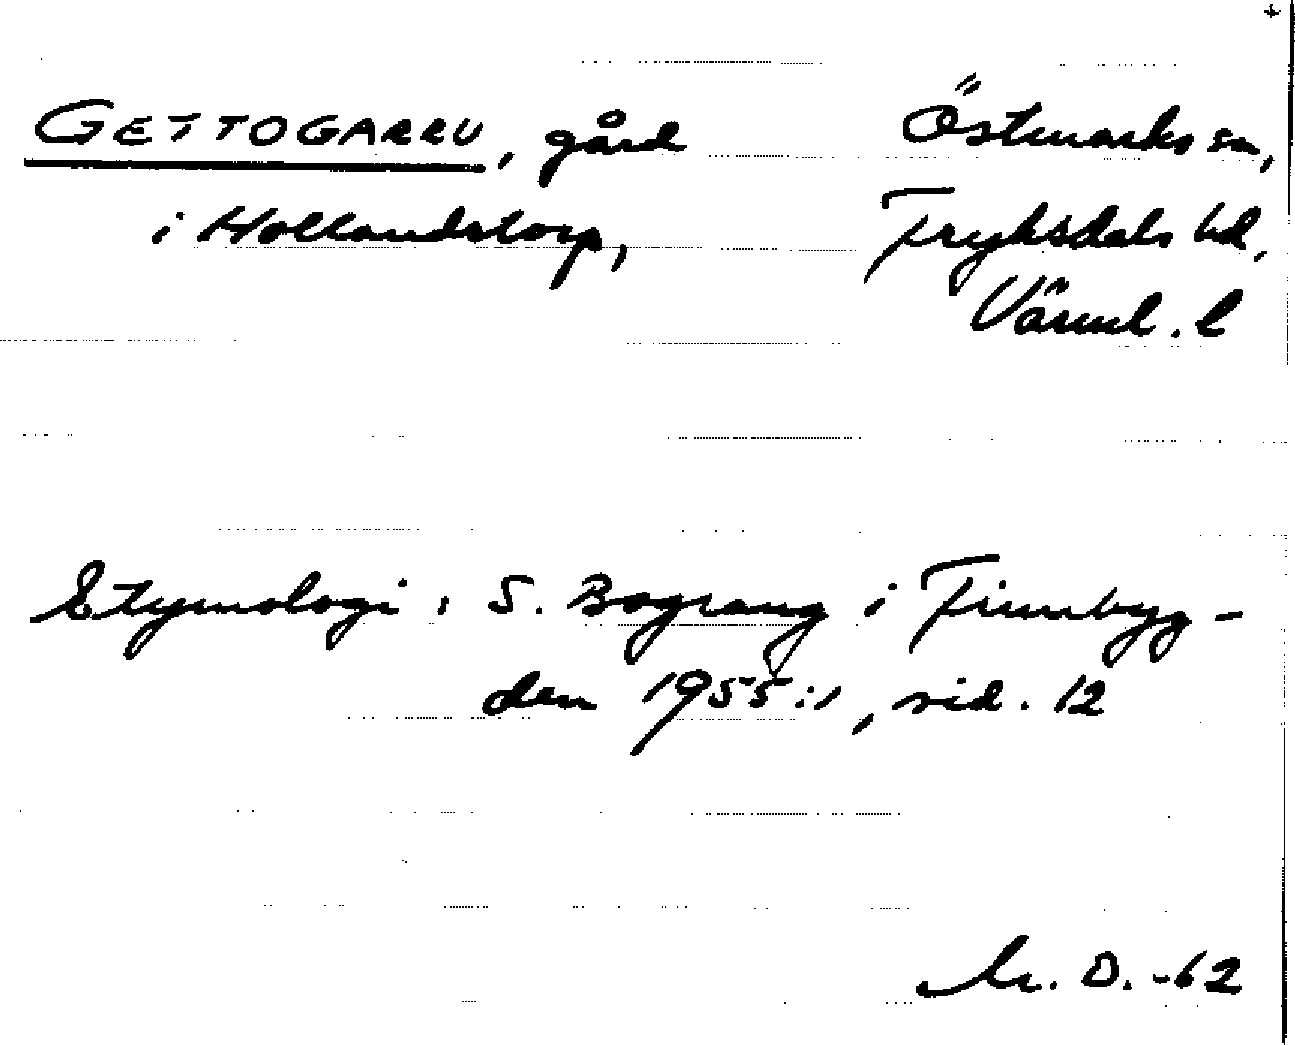 GETTOGARRU, gård
i Hollandstorp,
Östmarks sn,
Fryksdals hd,
Värml. l
Etymologi: S. Bograng i Finnbyg-
den 1955:1, sid. 12
D. -62